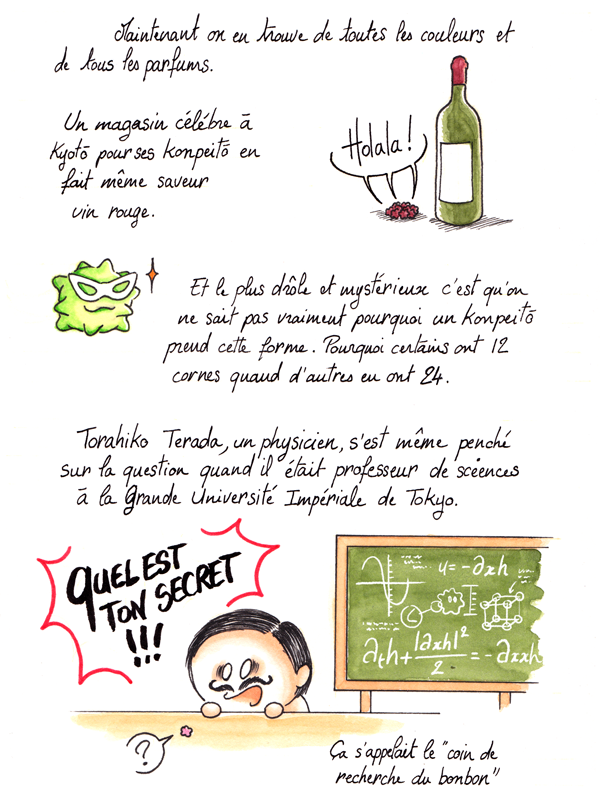 Maintenant on en trouve de toutes les couleurs et
de tous les parfums.
Un magasin célébre à
Kyotō pour ses konpeitō en
fait même saveur
vin rouge.
Holala !
Et le plus drôle et mystérieux c'est qu'on
ne sait pas vraiment pourquoi un konpeitō
prend cette forme. Pourquoi certains ont 12
cornes quand d'autres en ont 24.
Torahiko Terada, un physicien, s'est même penché
sur la question quand il était professeur de sciences
à la Grande Université Impériale de Tokyo.
QUEL EST
TON SECRET
!!!
u = -∂xh
∂th + |∂xh|²/2 = -∂xxh
?
Ça s'appelait le "coin de
recherche du bonbon"